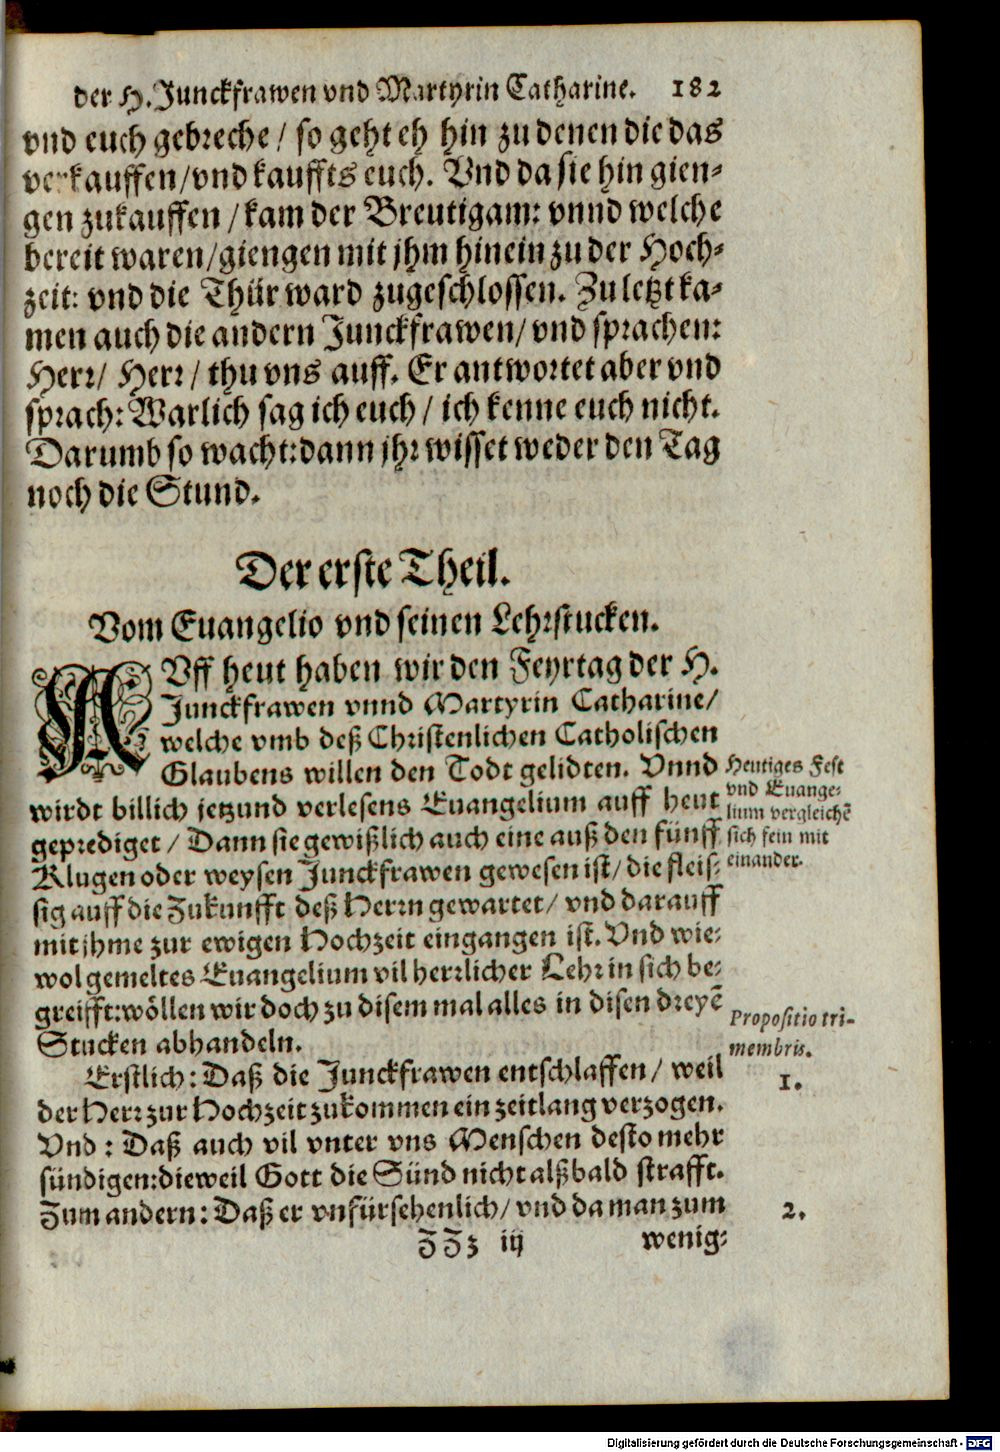 der H. Junckfrawen vnd Martyrin Catharine. 182
vnd euch gebreche / so geht eh hin zu denen die das
verkauffen/vnd kauffts euch. Vnd da sie hin gien-
gen zukauffen / kam der Breutigam: vnnd welche
bereit waren/giengen mit jhm hinein zu der Hoch-
zeit: vnd die Thür ward zugeschlossen. Zu letzt ka-
men auch die andern Junckfrawen/ vnd sprachen:
Herr/ Herr / thu vns auff. Er antwortet aber vnd
sprach: Warlich sag ich euch / ich kenne euch nicht.
Darumb so wacht: dann jhr wisset weder den Tag
noch die Stund.
Der erste Theil.
Vom Euangelio vnd seinen Lehrstucken.
AVff heut haben wir den Feyrtag der H.
Junckfrawen vnnd Martyrin Catharine/
welche vmb deß Christenlichen Catholischen
Glaubens willen den Todt gelidten. Vnnd
wirdt billich jetzund verlesens Euangelium auff heut
geprediget / Dann sie gewißlich auch eine auß den fünff
Klugen oder weysen Junckfrawen gewesen ist/ die fleis-
sig auff die Zukunfft deß Herrn gewartet/ vnd darauff
mit jhme zur ewigen Hochzeit eingangen ist. Vnd wie-
wol gemeltes Euangelium vil herrlicher Lehr in sich be-
greifft: wöllen wir doch zu disem mal alles in disen dreyẽ
Stucken abhandeln.
Erstlich: Daß die Junckfrawen entschlaffen/ weil
der Herr zur Hochzeit zukommen ein zeitlang verzogen.
Vnd : Daß auch vil vnter vns Menschen desto mehr
sündigen: dieweil Gott die Sünd nicht alßbald strafft.
Zum andern: Daß er vnfürsehenlich/ vnd da man zum
ZZz iij wenig-
Heutiges Fest
vnd Euange-
lium vergleichẽ
sich fein mit
einander.
Propositio tri-
membris.
1.
2.
Digitalisierung gefördert durch die Deutsche Forschungsgemeinschaft - DFG